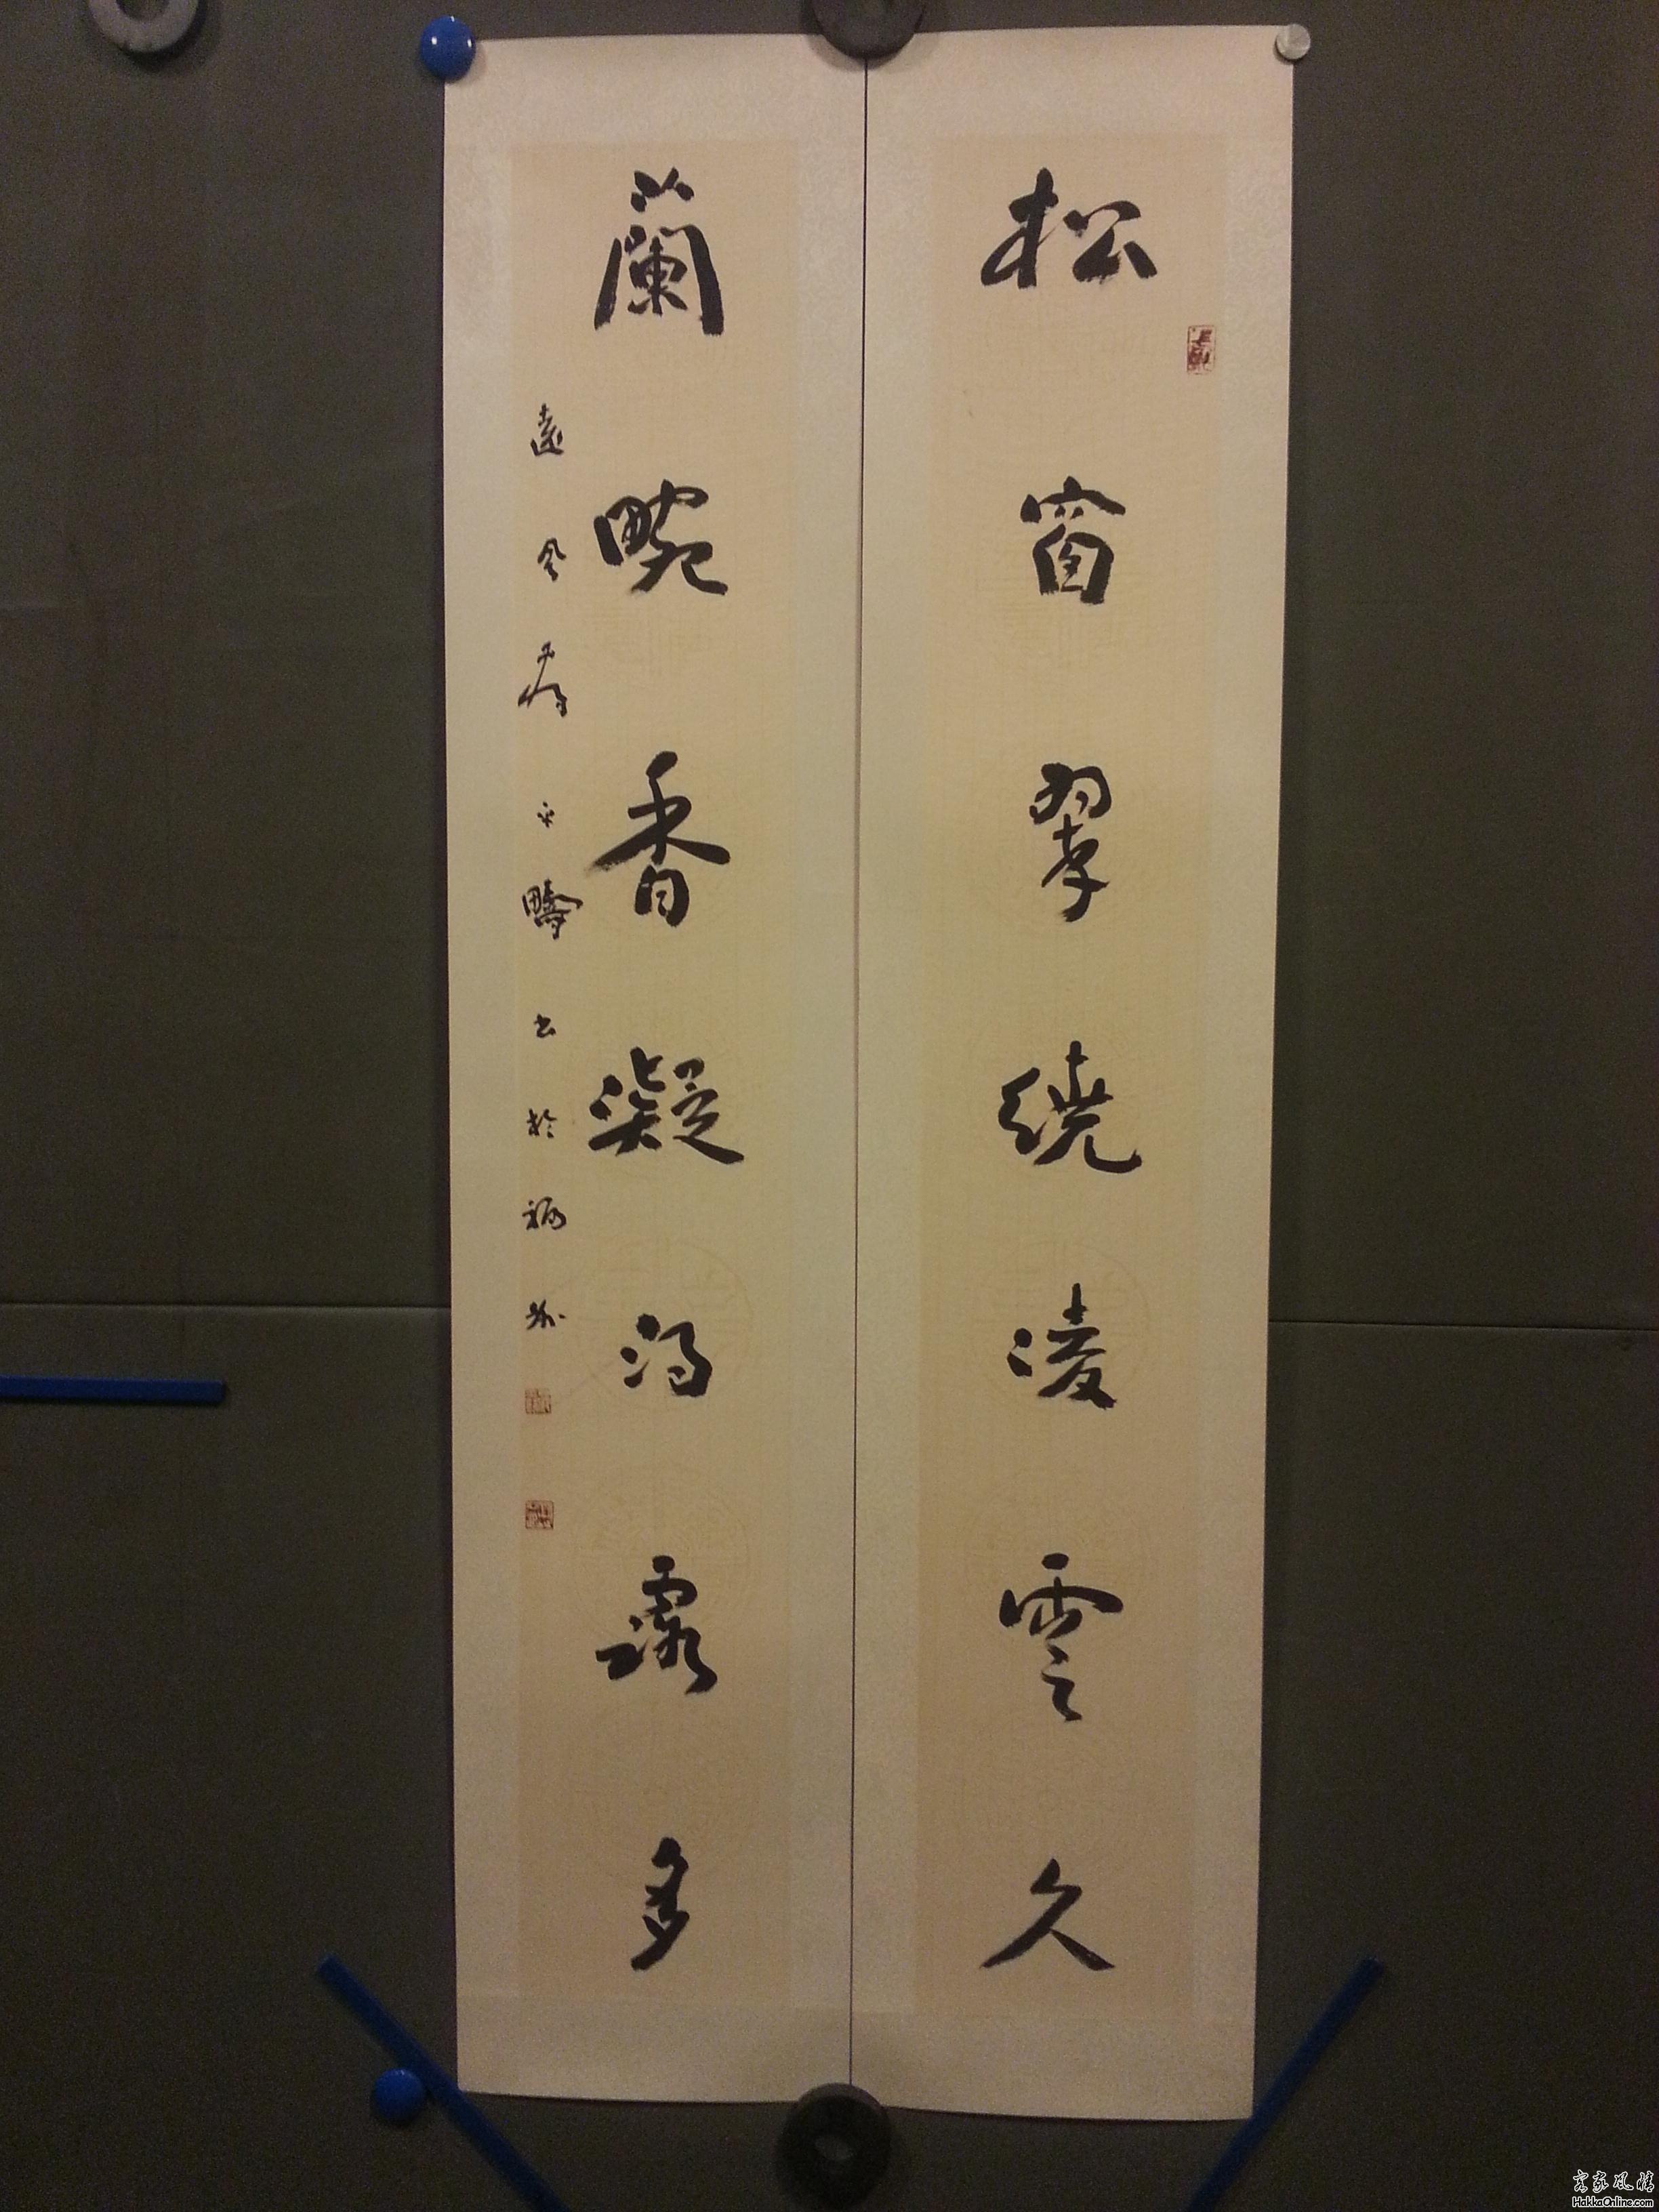 松窗翠繞凌雲久
蘭畹香凝得露多
遠風齋 平疇書於福州
客家风情
HakkaOnline.com